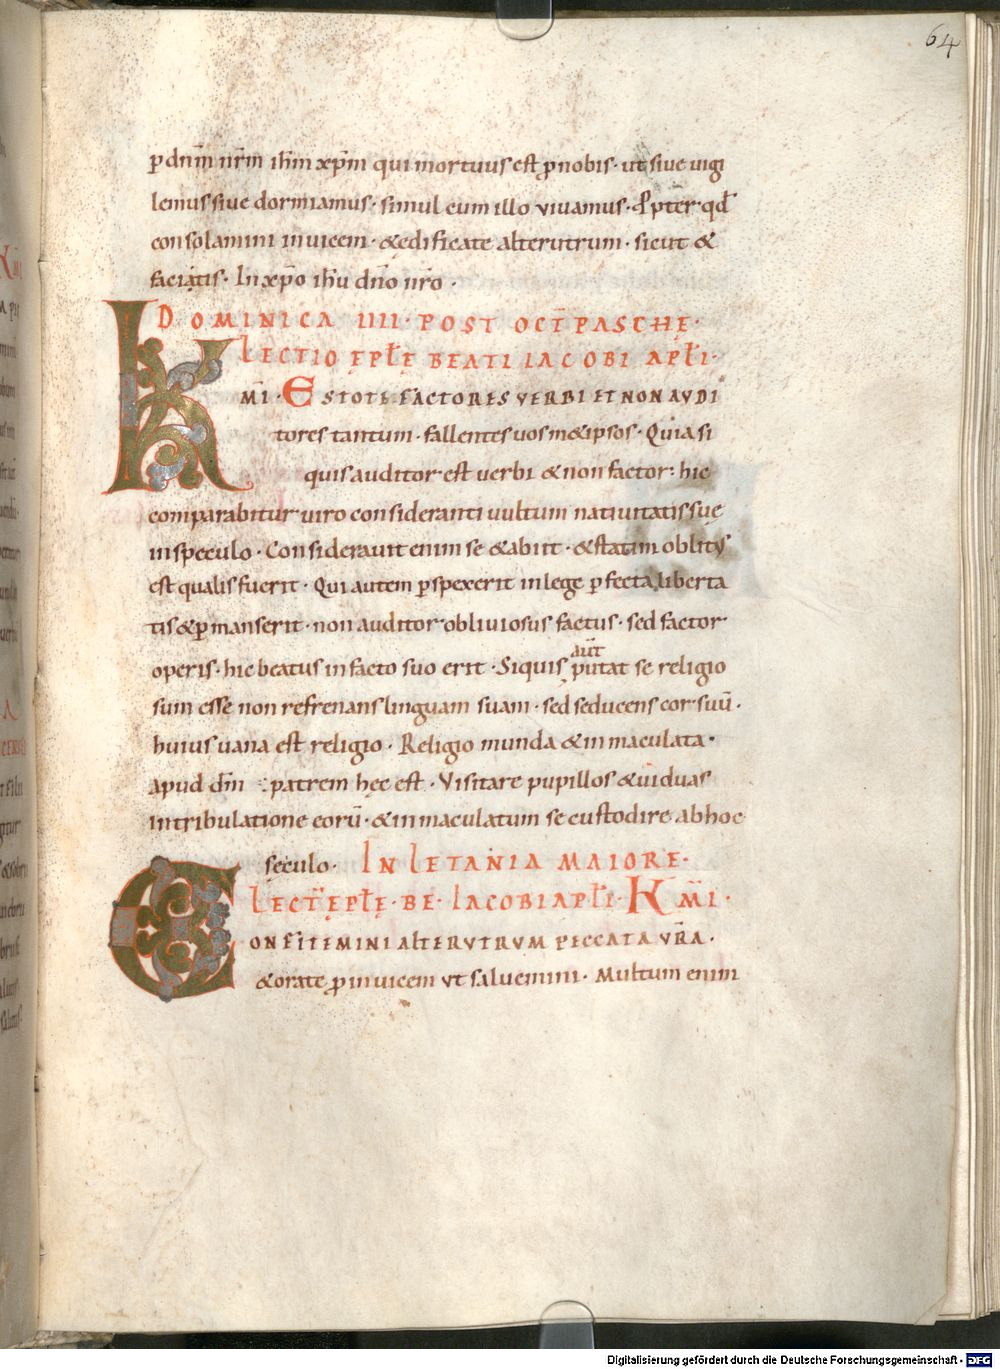 64
p dnm nrm ihm xpm qui mortuus est pnobis · ut siue uigi
lemus siue dormiamus · simul cum illo viuamus · Ppter qd
consolamini inuicem · & edificate alterutrum · sicut &
faciatis · In xpo ihu dno nro ·
DOMINICA IIII · POST OCT PASCHĘ ·
LECTIO EPLĘ BEATI IACOBI APLI ·
K MI · ESTOTE FACTORES VERBI ET NON AVDI
tores tantum · fallentes uosm&ipsos · Quia si
quis auditor est uerbi & non factor : hic
comparabitur uiro consideranti uultum natiuitatis suę
in speculo · Considerauit enim se & abiit · & statim oblitus
est qualis fuerit · Qui autem pspexerit in lege pfecta liberta
tis & pmanserit · non auditor obliuiosus factus · sed factor
operis · hic beatus in facto suo erit · Siquis aut putat se religio
sum esse non refrenans linguam suam · sed seducens cor suū ·
huius uana est religio · Religio munda & inmaculata ·
apud dm patrem hęc est · Visitare pupillos & uiduas
in tribulatione eorū · & inmaculatum se custodire ab hoc
sęculo · IN LETANIA MAIORE ·
LECT EPLĘ · BE · IACOBI APLI · K MI ·
CONFITEMINI ALTERVTRVM PECCATA VRA ·
& orate pinuicem vt saluemini · Multum enim
Digitalisierung gefördert durch die Deutsche Forschungsgemeinschaft - DFG